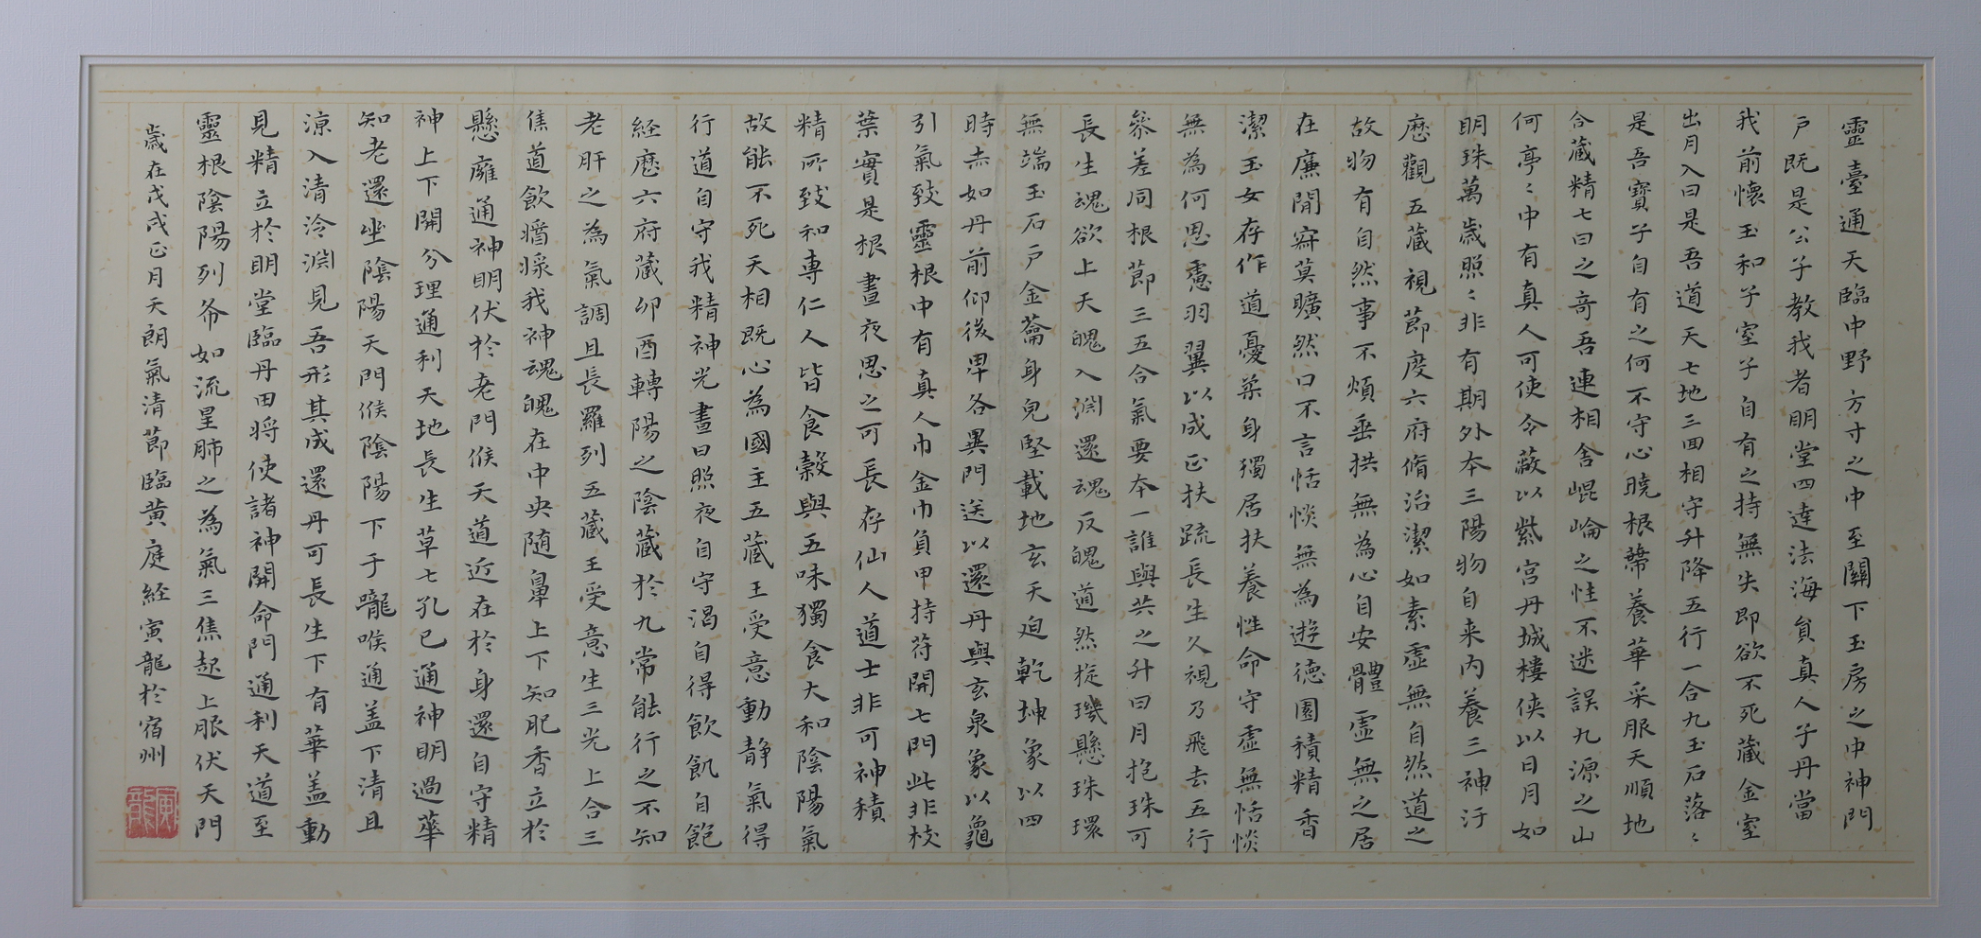 靈臺通天臨中野方寸之中至關下玉房之中神門
戶既是公子教我者明堂四達法海貟真人子丹當
我前懷玉和子室子自有之持無失即欲不死藏金室
出月入日是吾道天七地三四相守升降五行一合九玉石落〻
是吾寶子自有之何不守心曉根蔕養華采服天順地
合藏精七日之奇吾連相舍崐崘之性不迷誤九源之山
何亭〻中有真人可使令蔽以紫宮丹城樓俠以日月如
明珠萬歲照〻非有期外本三陽物自来内養三神汙
歷觀五藏視節度六府脩治潔如素虛無自然道之
故物有自然事不煩垂拱無為心自安體虛無之居
在廉閒寂莫曠然口不言恬惔無為遊德園積精香
潔玉女存作道憂柔身獨居扶養性命守虛無恬惔
無為何思慮羽翼以成正扶疏長生久視乃飛去五行
參差同根節三五合氣要本一誰與共之升日月抱珠可
長生魂欲上天魄入淵還魂反魄道然㨁璣懸珠環
無端玉石戶金籥身皃堅載地玄天迫乾坤象以四
時赤如丹前仰後卑各異門送以還丹與玄泉象以龜
引氣致靈根中有真人巾金巾負甲持苻開七門此非枝
葉實是根晝夜思之可長存仙人道士非可神積
精所致和專仁人皆食穀與五味獨食大和陰陽氣
故能不死天相既心為國主五藏王受意動静氣得
行道自守我精神光晝日照夜自守渴自得飲飢自飽
経歷六府藏卯酉轉陽之陰藏於九常能行之不知
老肝之為氣調且長羅列五藏王受意生三光上合三
焦道飲醬漿我神魂魄在中央随鼻上下知肥香立於
懸廱通神明伏於老門候天道近在於身還自守精
神上下開分理通利天地長生草七孔已通神明過華
知老還坐陰陽天門候陰陽下于嚨喉通盖下清且
涼入清泠淵見吾形其成還丹可長生下有華盖動
見精立於明堂臨丹田将使諸神開命門通利天道至
靈根陰陽列布如流星肺之為氣三焦起上服伏天門
歲在戊戌正月天朗氣清節臨黄庭経寅龍於宿州
寅龍